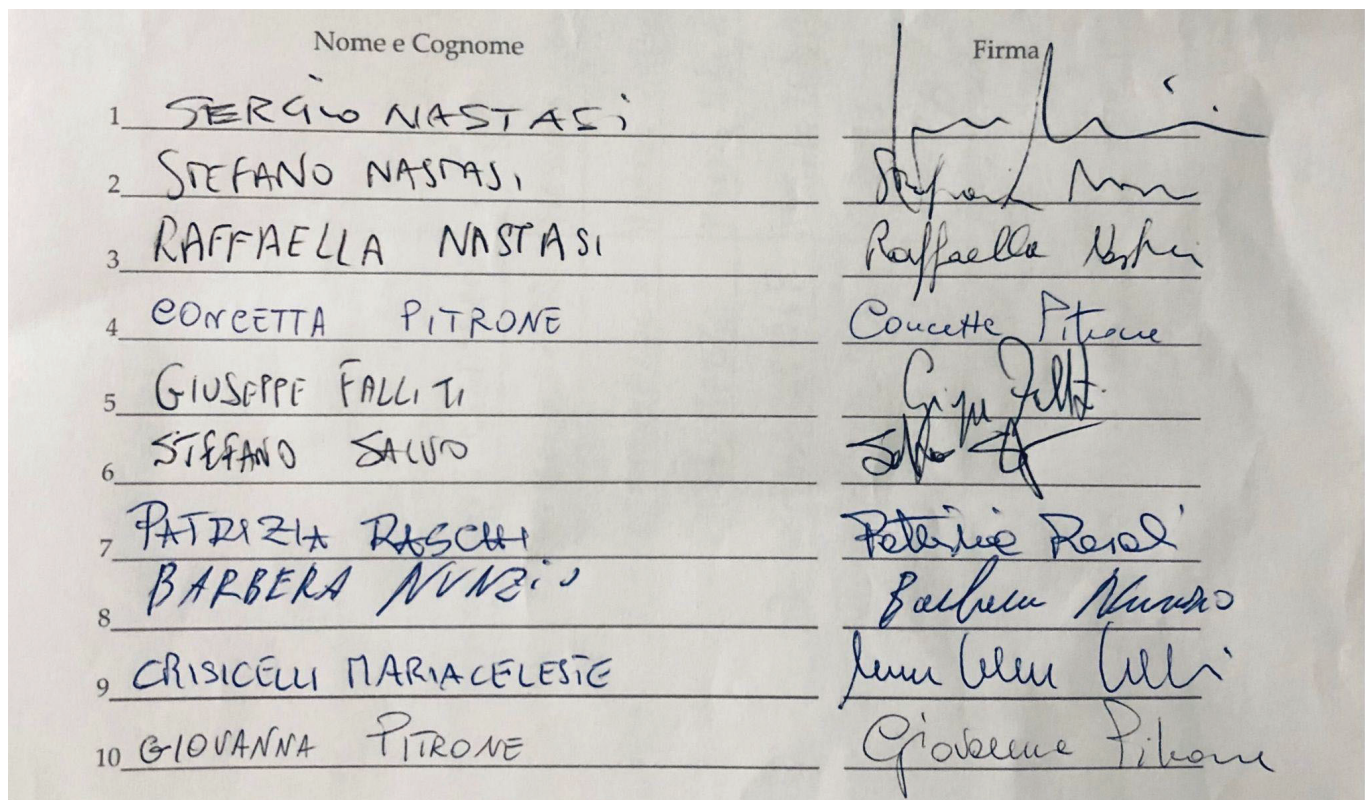 Nome e Cognome Firma
1 SERGIO NASTASI
2 STEFANO NASTASI
3 RAFFAELLA NASTASI Raffaella Nastasi
4 CONCETTA PITRONE Concetta Pitrone
5 GIUSEPPE FALLITI
6 STEFANO SALVO
7 PATRIZIA RASCHI Patrizia
8 BARBERA NUNZIO Barbera Nunzio
9 CRISICELLI MARIACELESTE
10 GIOVANNA PITRONE Giovanna Pitrone